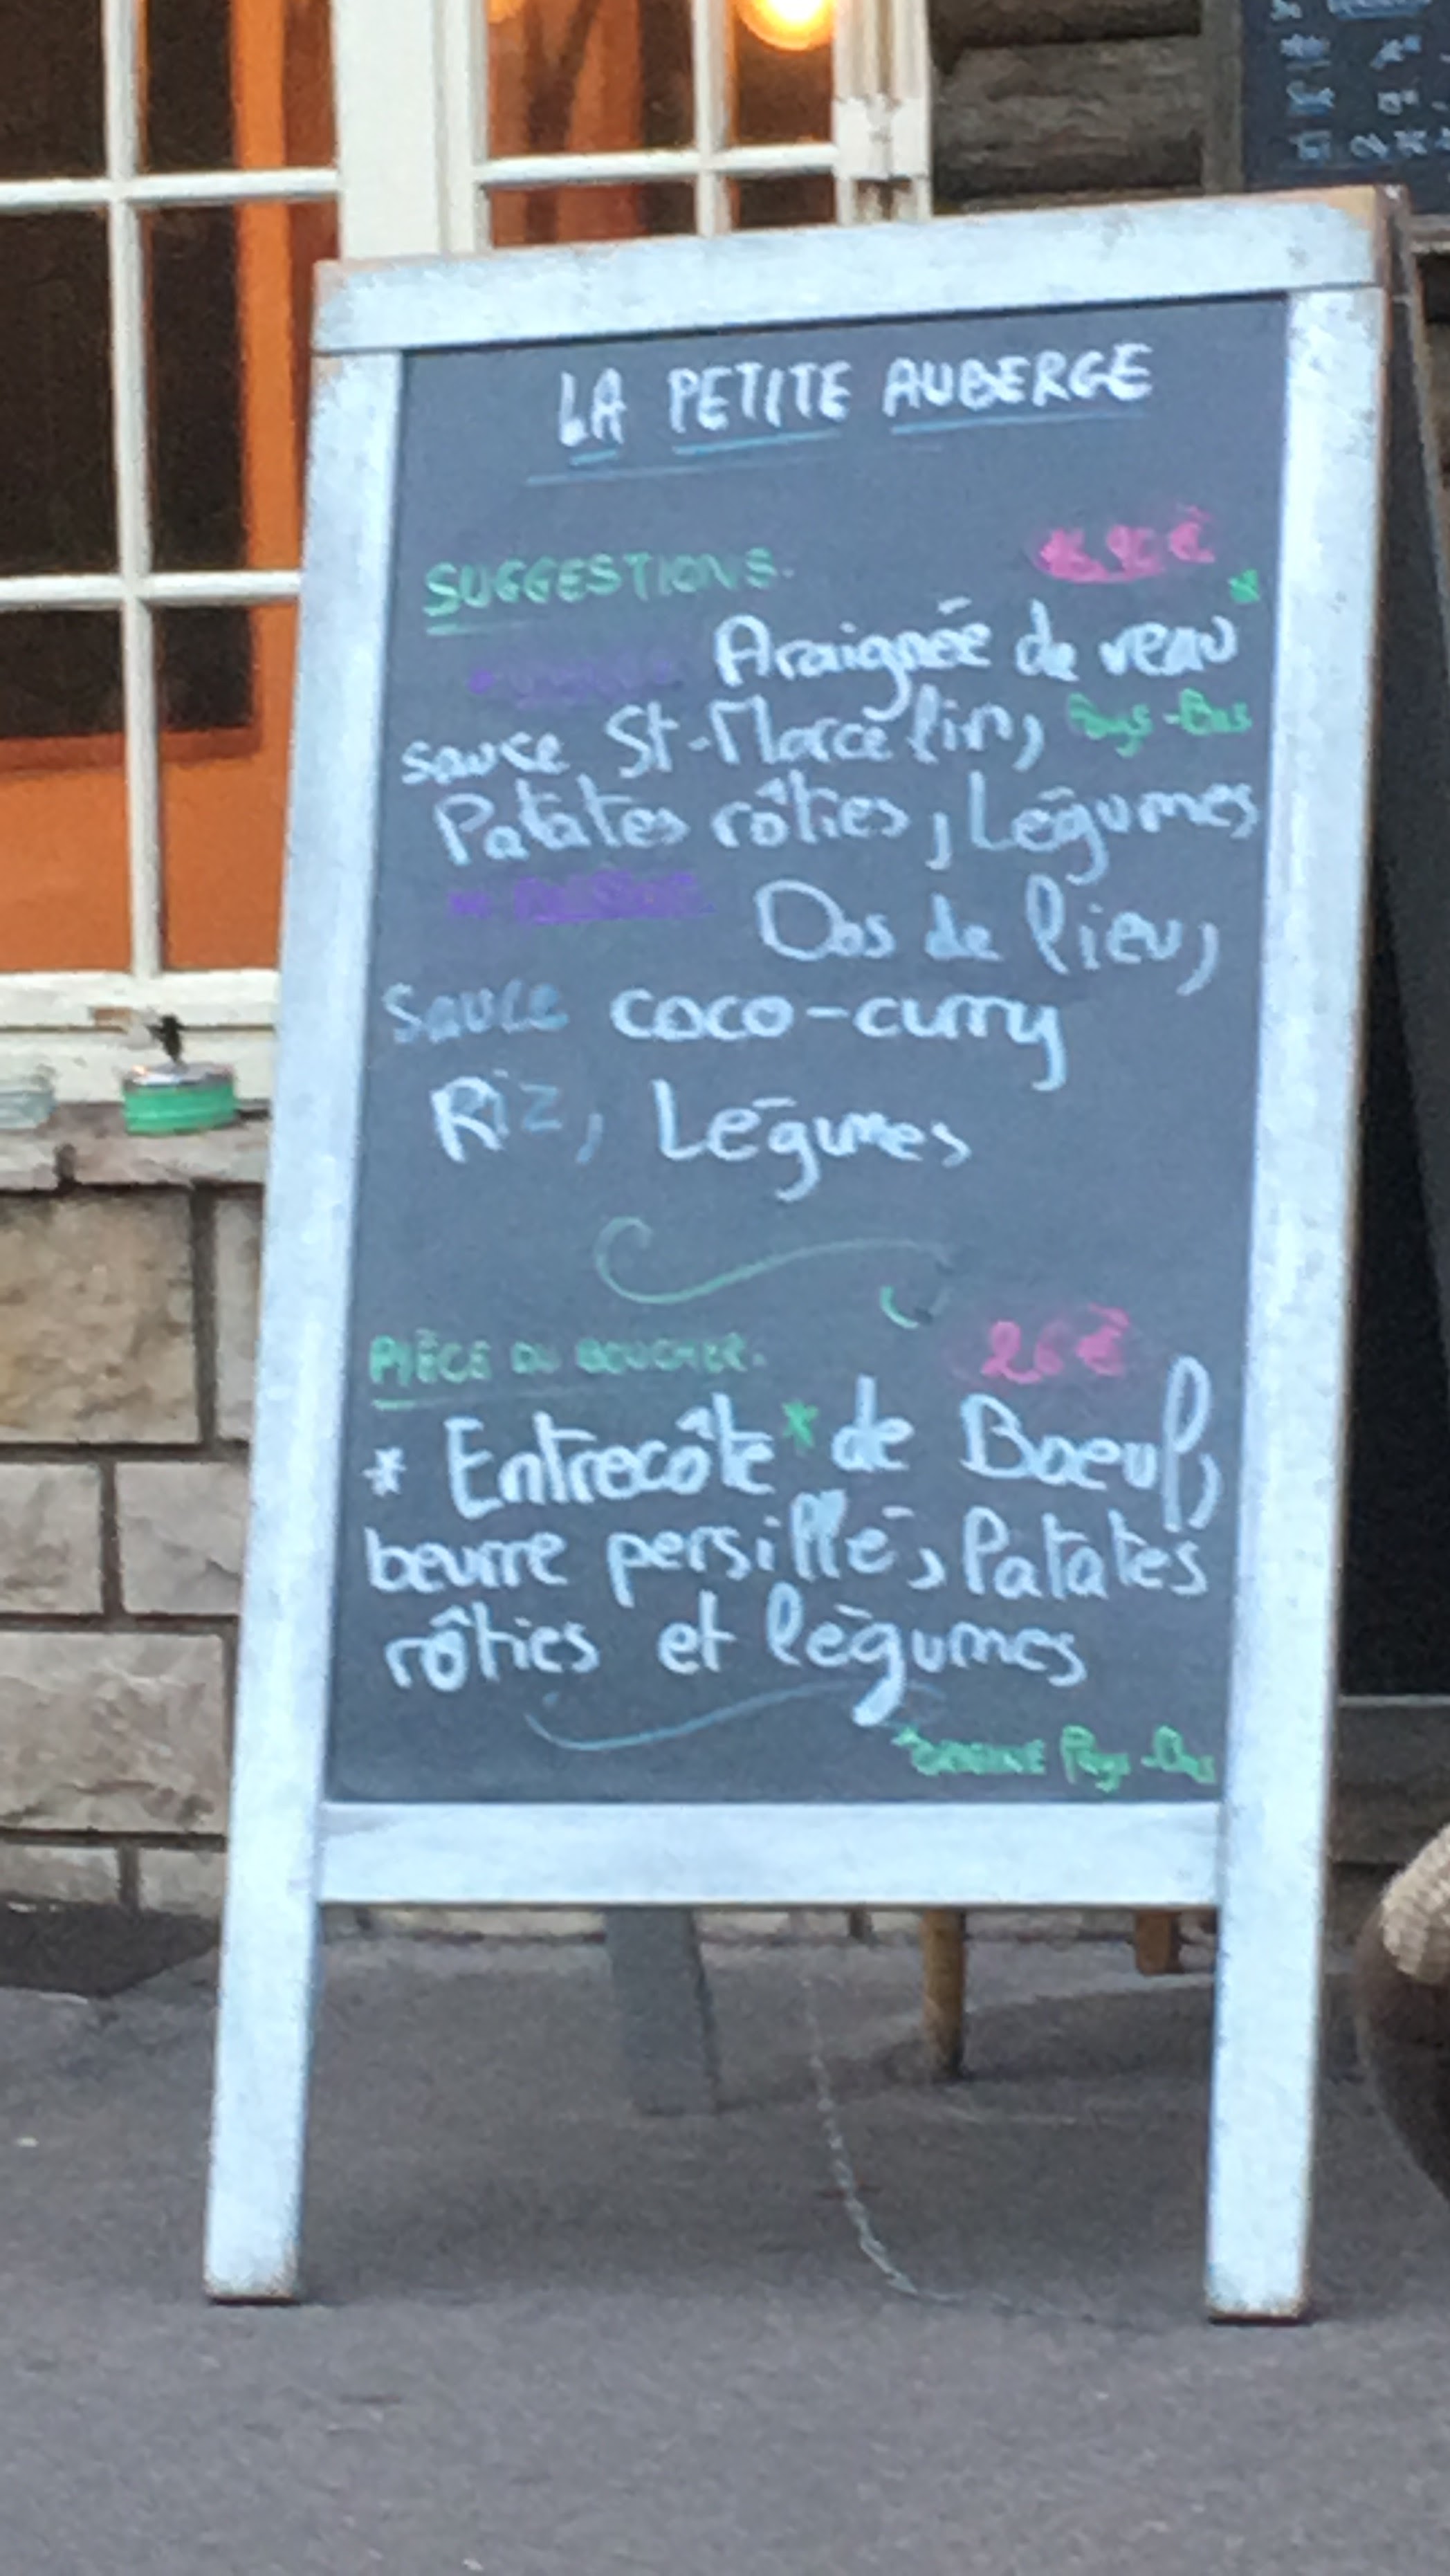 LA PETITE AUBERGE
SUGGESTIONS.
Araignée de veau*
sauce St-Marcelin, Pays-Bas
Patates rôties, Légumes
Dos de lieu,
Sauce coco-curry
Riz, Légumes
PIÈCE DU BOUCHER. 26€
* Entrecôte* de Boeuf,
beurre persillé, Patates
rôties et légumes
*ORIGINE Pays-Bas